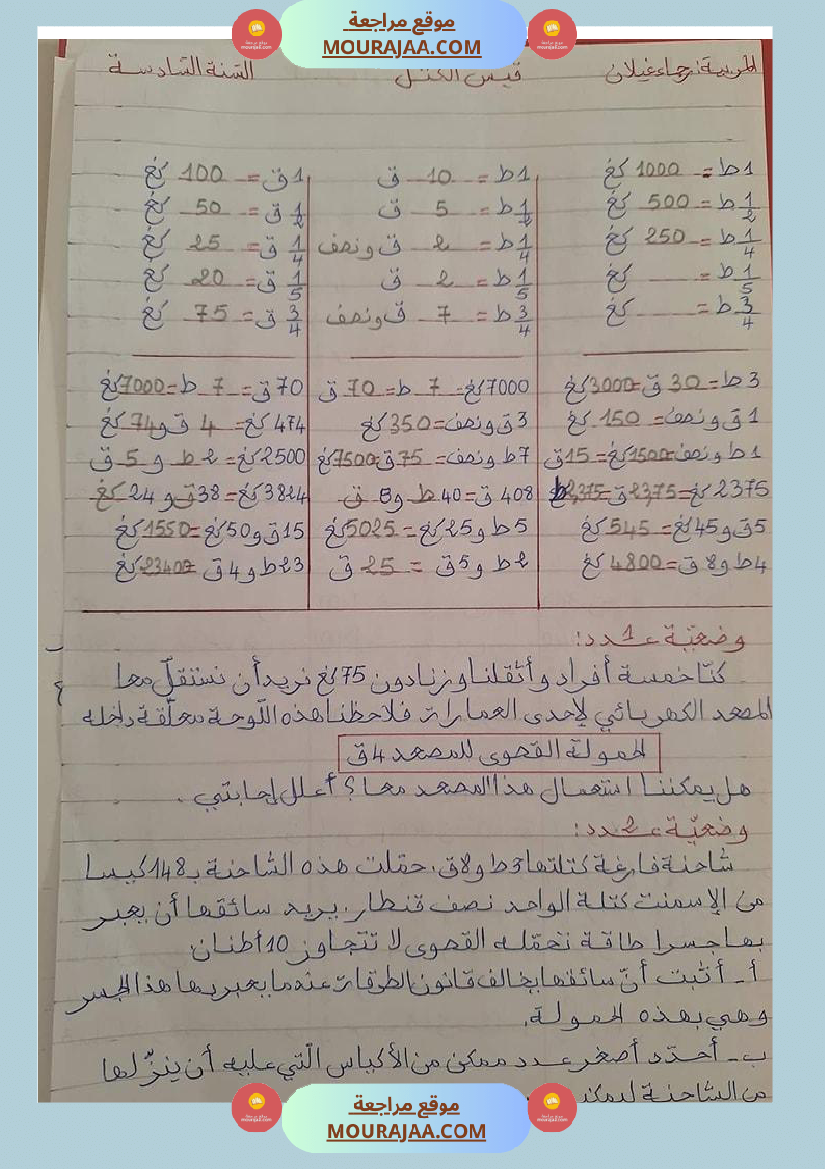 موقع مراجعة
MOURAJAA.COM
المربية: رجاء غيلان قيس الكتل السنة السادسة
1ط = 1000 كغ
1/2 ط = 500 كغ
1/4 ط = 250 كغ
1/5 ط = ــــ كغ
3/4 ط = ــــ كغ
1ط = 10 ق
1/2 ط = 5 ق
1/4 ط = 2 ق ونصف
1/5 ط = 2 ق
3/4 ط = 7 ق ونصف
1ق = 100 كغ
1/2 ق = 50 كغ
1/4 ق = 25 كغ
1/5 ق = 20 كغ
3/4 ق = 75 كغ
3ط = 30 ق = 3000 كغ
1ق ونصف = 150 كغ
1ط ونصف = 1500 كغ = 15 ق
2375 كغ = 23,75 ق = 2,375 ط
5ق و45 كغ = 545 كغ
4ط و8 ق = 4800 كغ
7000 كغ = 7 ط = 70 ق
3ق ونصف = 350 كغ
7ط ونصف = 75 ق = 7500 كغ
408 ق = 40 ط و8 ق
5ط و25 كغ = 5025 كغ
2ط و5ق = 25 ق
70ق = 7 ط = 7000 كغ
474 كغ = 4 ق و74 كغ
2500 كغ = 2 ط و 5 ق
3824 كغ = 38 ق و 24 كغ
15ق و50 كغ = 1550 كغ
23ط و4 ق = 23400 كغ
وضعيّة عـ1ـدد:
كنّا خمسة أفراد وأثقلنا وزنا دون 75 كغ نريد أن نستقلّ معا
المصعد الكهربائي لإحدى العمارات فلاحظنا هذه اللّوحة معلّقة داخله
الحمولة القصوى للمصعد 4ق
هل يمكننا استعمال هذا المصعد معا؟ أعلل إجابتي.
وضعيّة عـ2ـدد:
شاحنة فارغة كتلتها 3ط و8ق، حمّلت هذه الشاحنة بـ 148 كيسا
من الإسمنت كتلة الواحد نصف قنطار. يريد سائقها أن يعبر
بها جسرا طاقة تحمّله القصوى لا تتجاوز 10 أطنان
أ- أثبت أنّ سائقها يخالف قانون الطرقات عندما يعبر بها هذا الجسر
وهي بهذه الحمولة.
ب- أحدّد أصغر عدد ممكن من الأكياس الّتي عليه أن ينزّلها
من الشاحنة ليمكنه
موقع مراجعة
MOURAJAA.COM